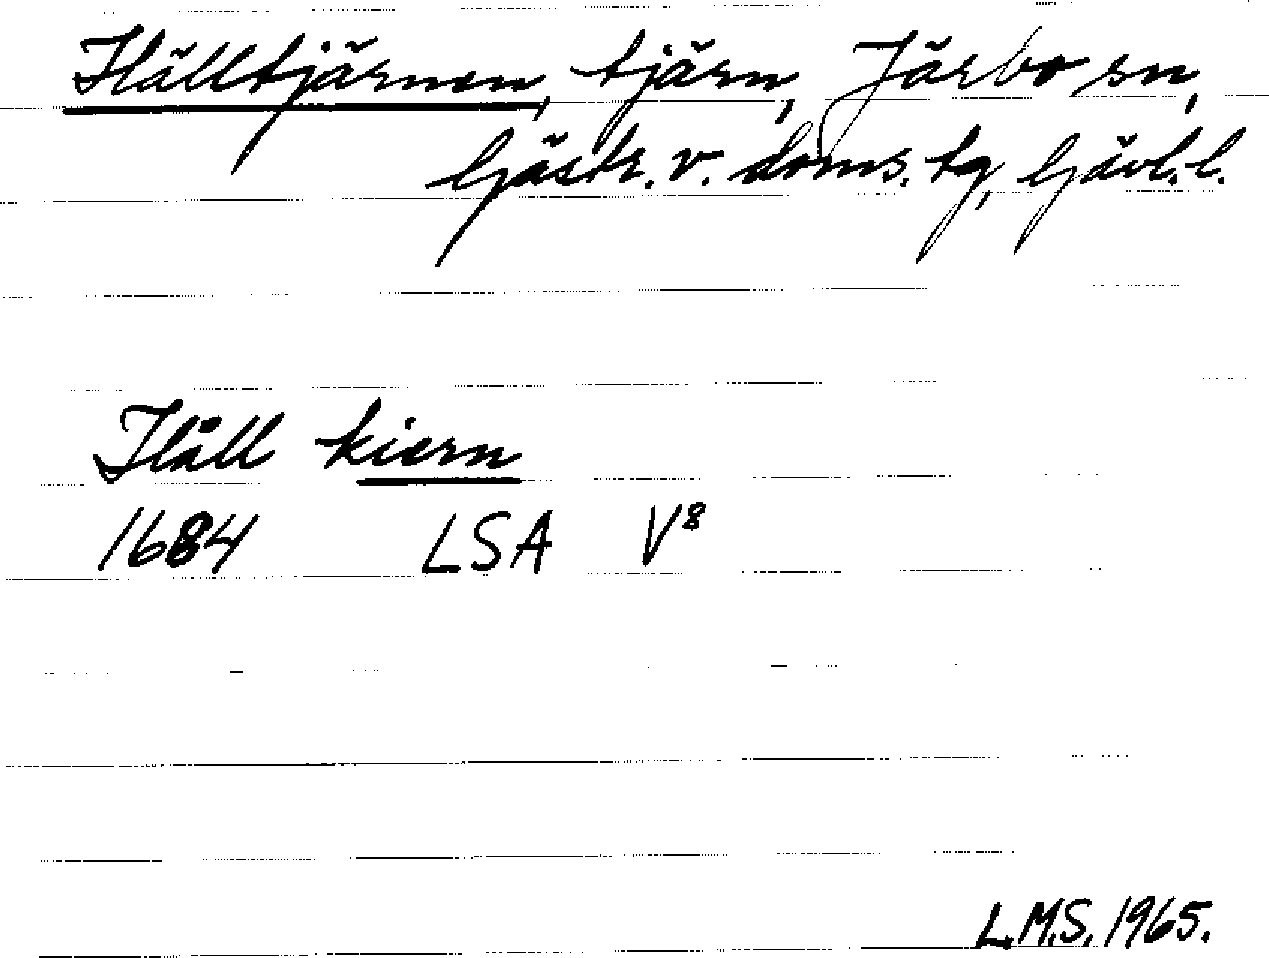 Hälltjärnen, tjärn, Järbo sn,
Gästr. v. doms. tg, Gävl. l.
Häll kiern
1684 LSA V⁸
L.M.S. 1965.